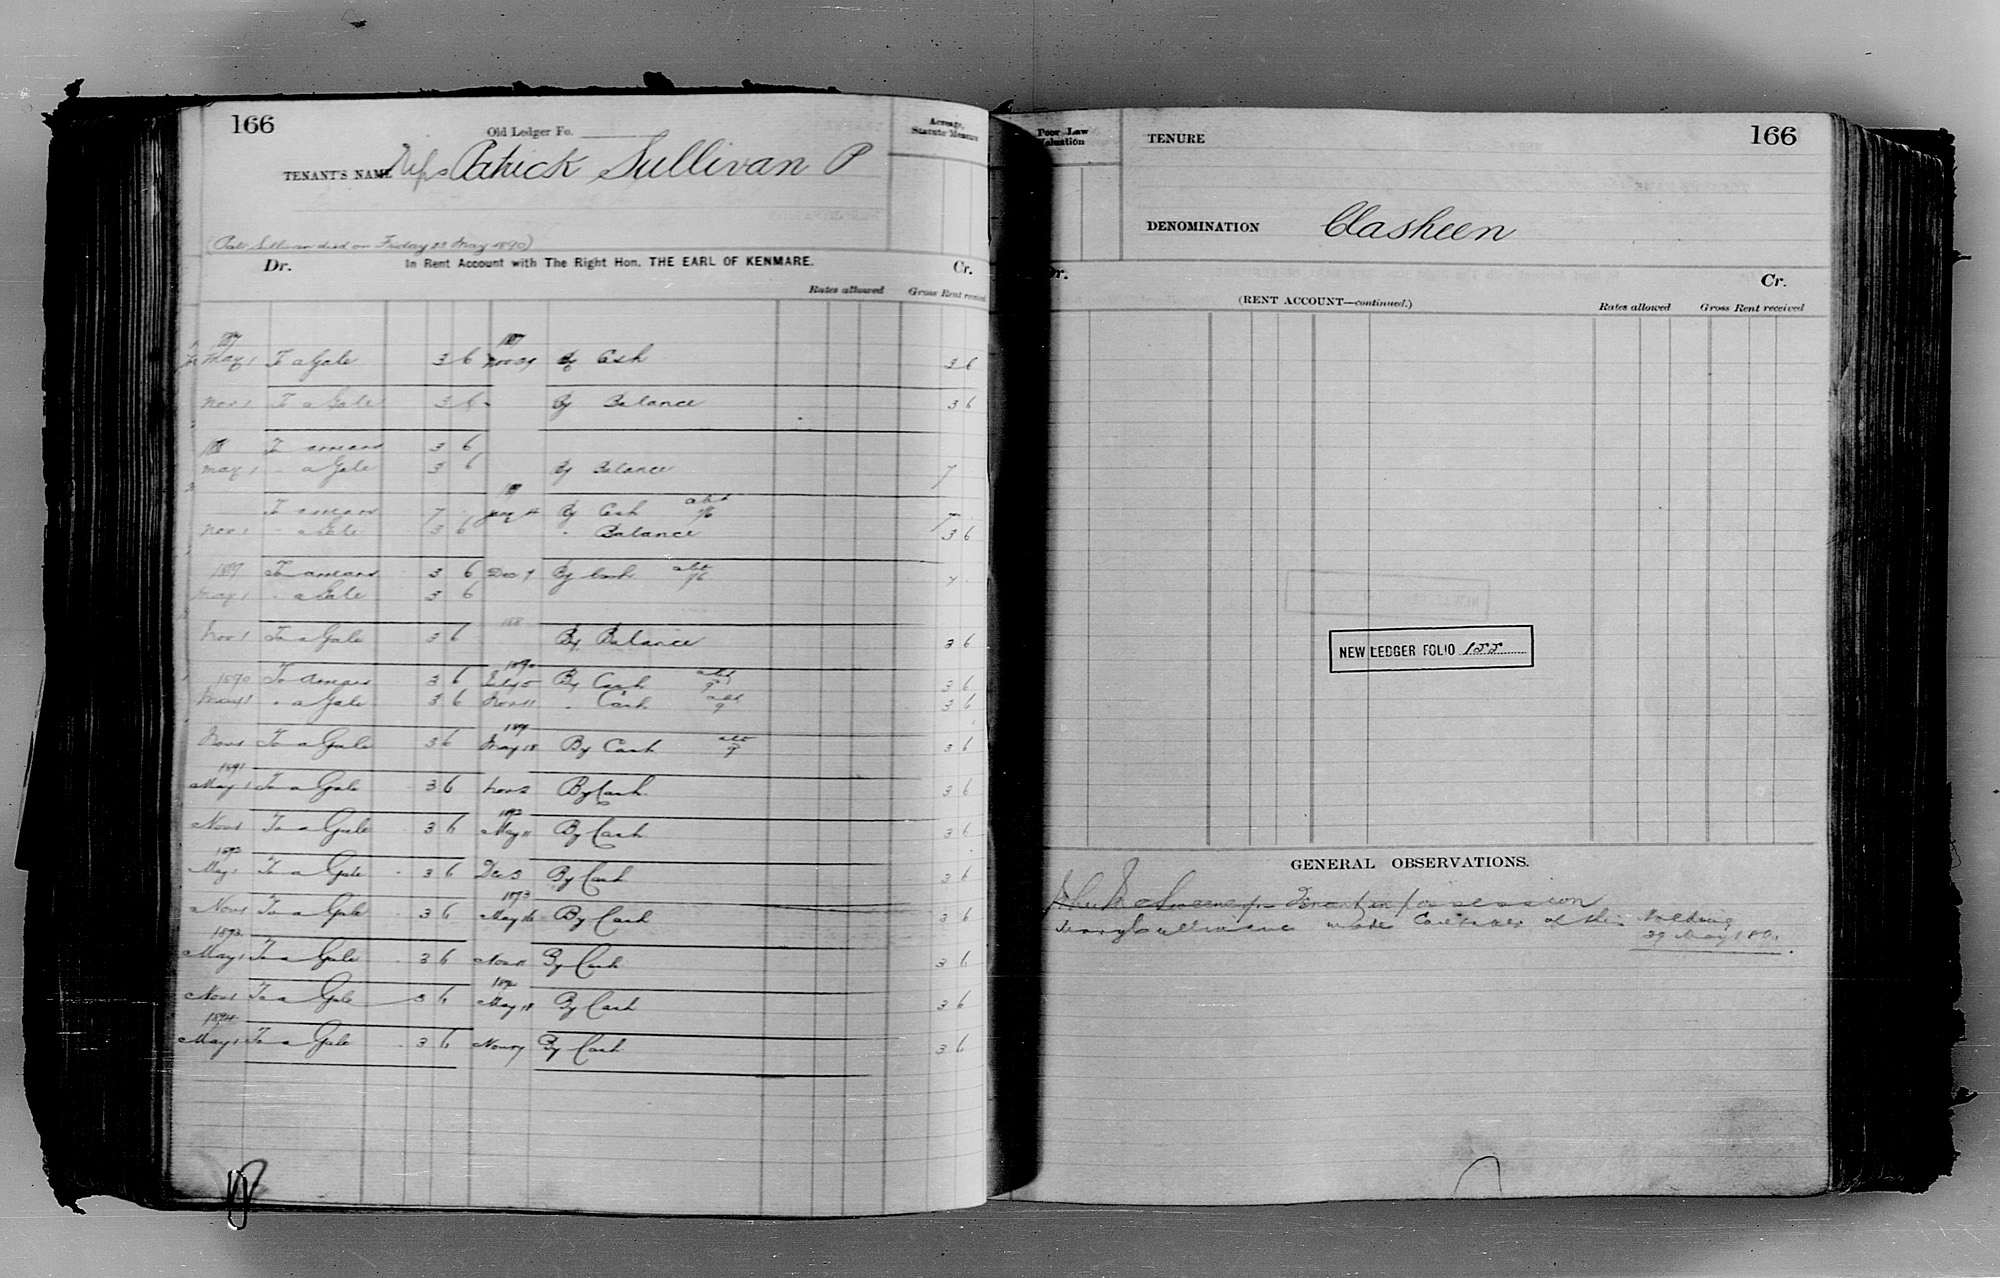 166
Old Ledger Fo.
TENANT'S NAME Reps Patrick Sullivan P
Acreage, Statute Measure
(Patk Sullivan died on Friday 23 May 1890)
Dr. In Rent Account with The Right Hon. THE EARL OF KENMARE. Cr.
Rates allowed Gross Rent received
1887 1887
May 1 To a Gale 3 6 By Cash 3 6
Nov 1 To a Gale 3 6 By Balance 3 6
1888 To arrears 3 6
May 1 " a Gale 3 6 By Balance 7
1889
To arrears 7 Jany 4 By Cash abt 1/6 7
Nov 1 " a Gale 3 6 " Balance 3 6
1889 To arrears 3 6 Dec 7 By Cash abt 1/6 7
May 1 " a Gale 3 6
Nov 1 To a Gale 3 6 By Balance 3 6
1890
1890 To arrears 3 6 By Cash abt 9 3 6
May 1 " a Gale 3 6 Nov 11 " Cash abt 9 3 6
1891
Nov 1 To a Gale 3 6 May 18 By Cash abt 9 3 6
1891
May 1 To a Gale 3 6 Nov 2 By Cash 3 6
1892
Nov 1 To a Gale 3 6 May 11 By Cash 3 6
1892
May 1 To a Gale 3 6 Dec 3 By Cash 3 6
1893
Nov 1 To a Gale 3 6 May 16 By Cash 3 6
1893
May 1 To a Gale 3 6 Nov 11 By Cash 3 6
1894
Nov 1 To a Gale 3 6 May 18 By Cash 3 6
1894
May 1 To a Gale 3 6 By Cash 3 6
Poor Law Valuation
TENURE
166
DENOMINATION Clasheen
Dr. Cr.
(RENT ACCOUNT—continued.) Rates allowed Gross Rent received
NEW LEDGER FOLIO 155
GENERAL OBSERVATIONS.
John McSweeney Tenant in possession
Mary Sullivan made Caretaker of this holding
29 May 1891.